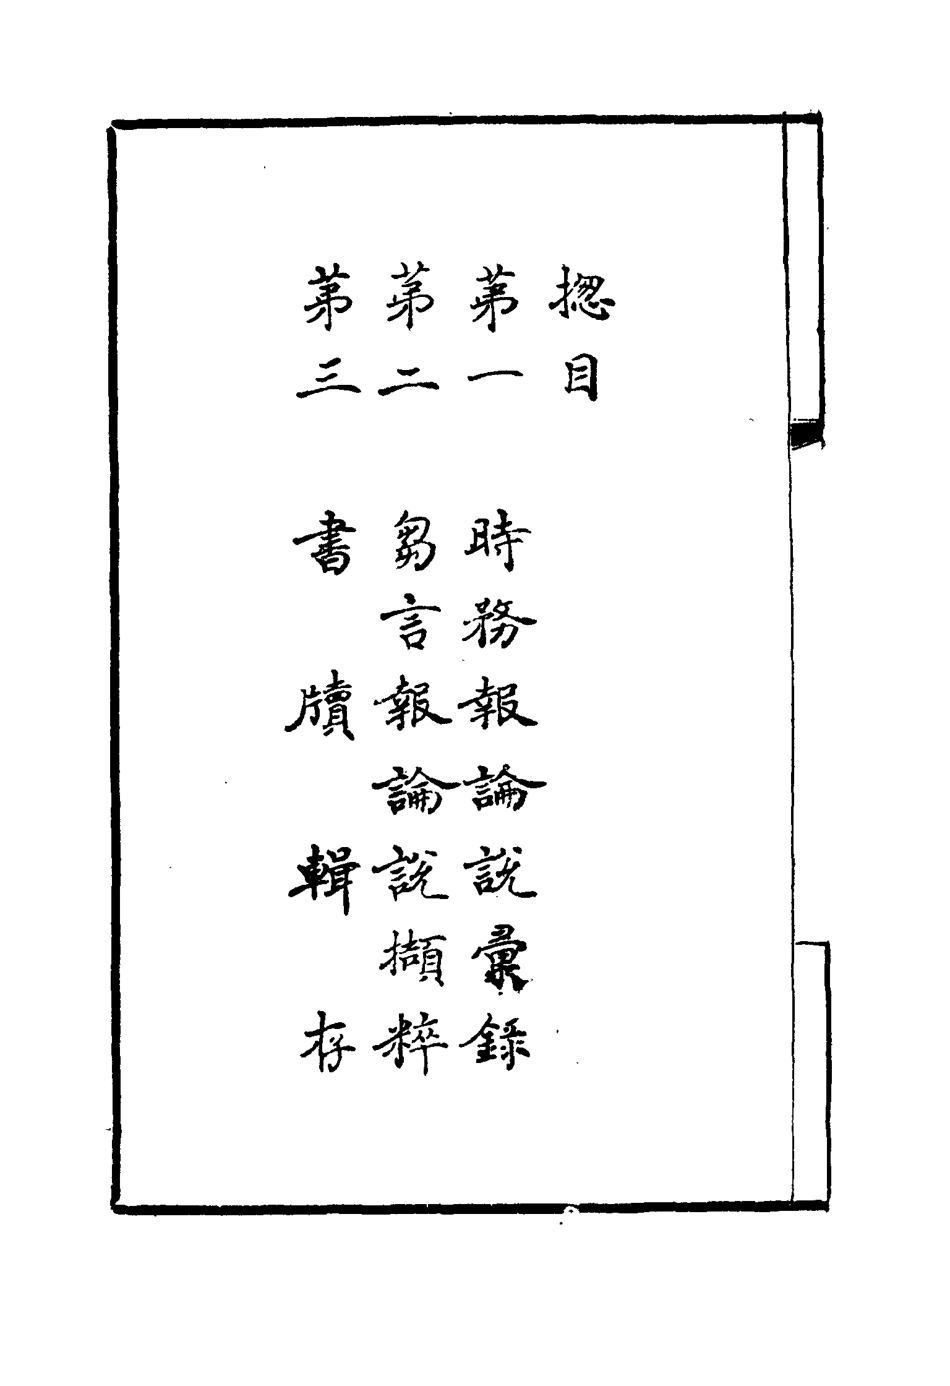 揔目
苐一 時務報論說彙錄
苐二 芻言報論說擷粹
苐三 書牘輯存